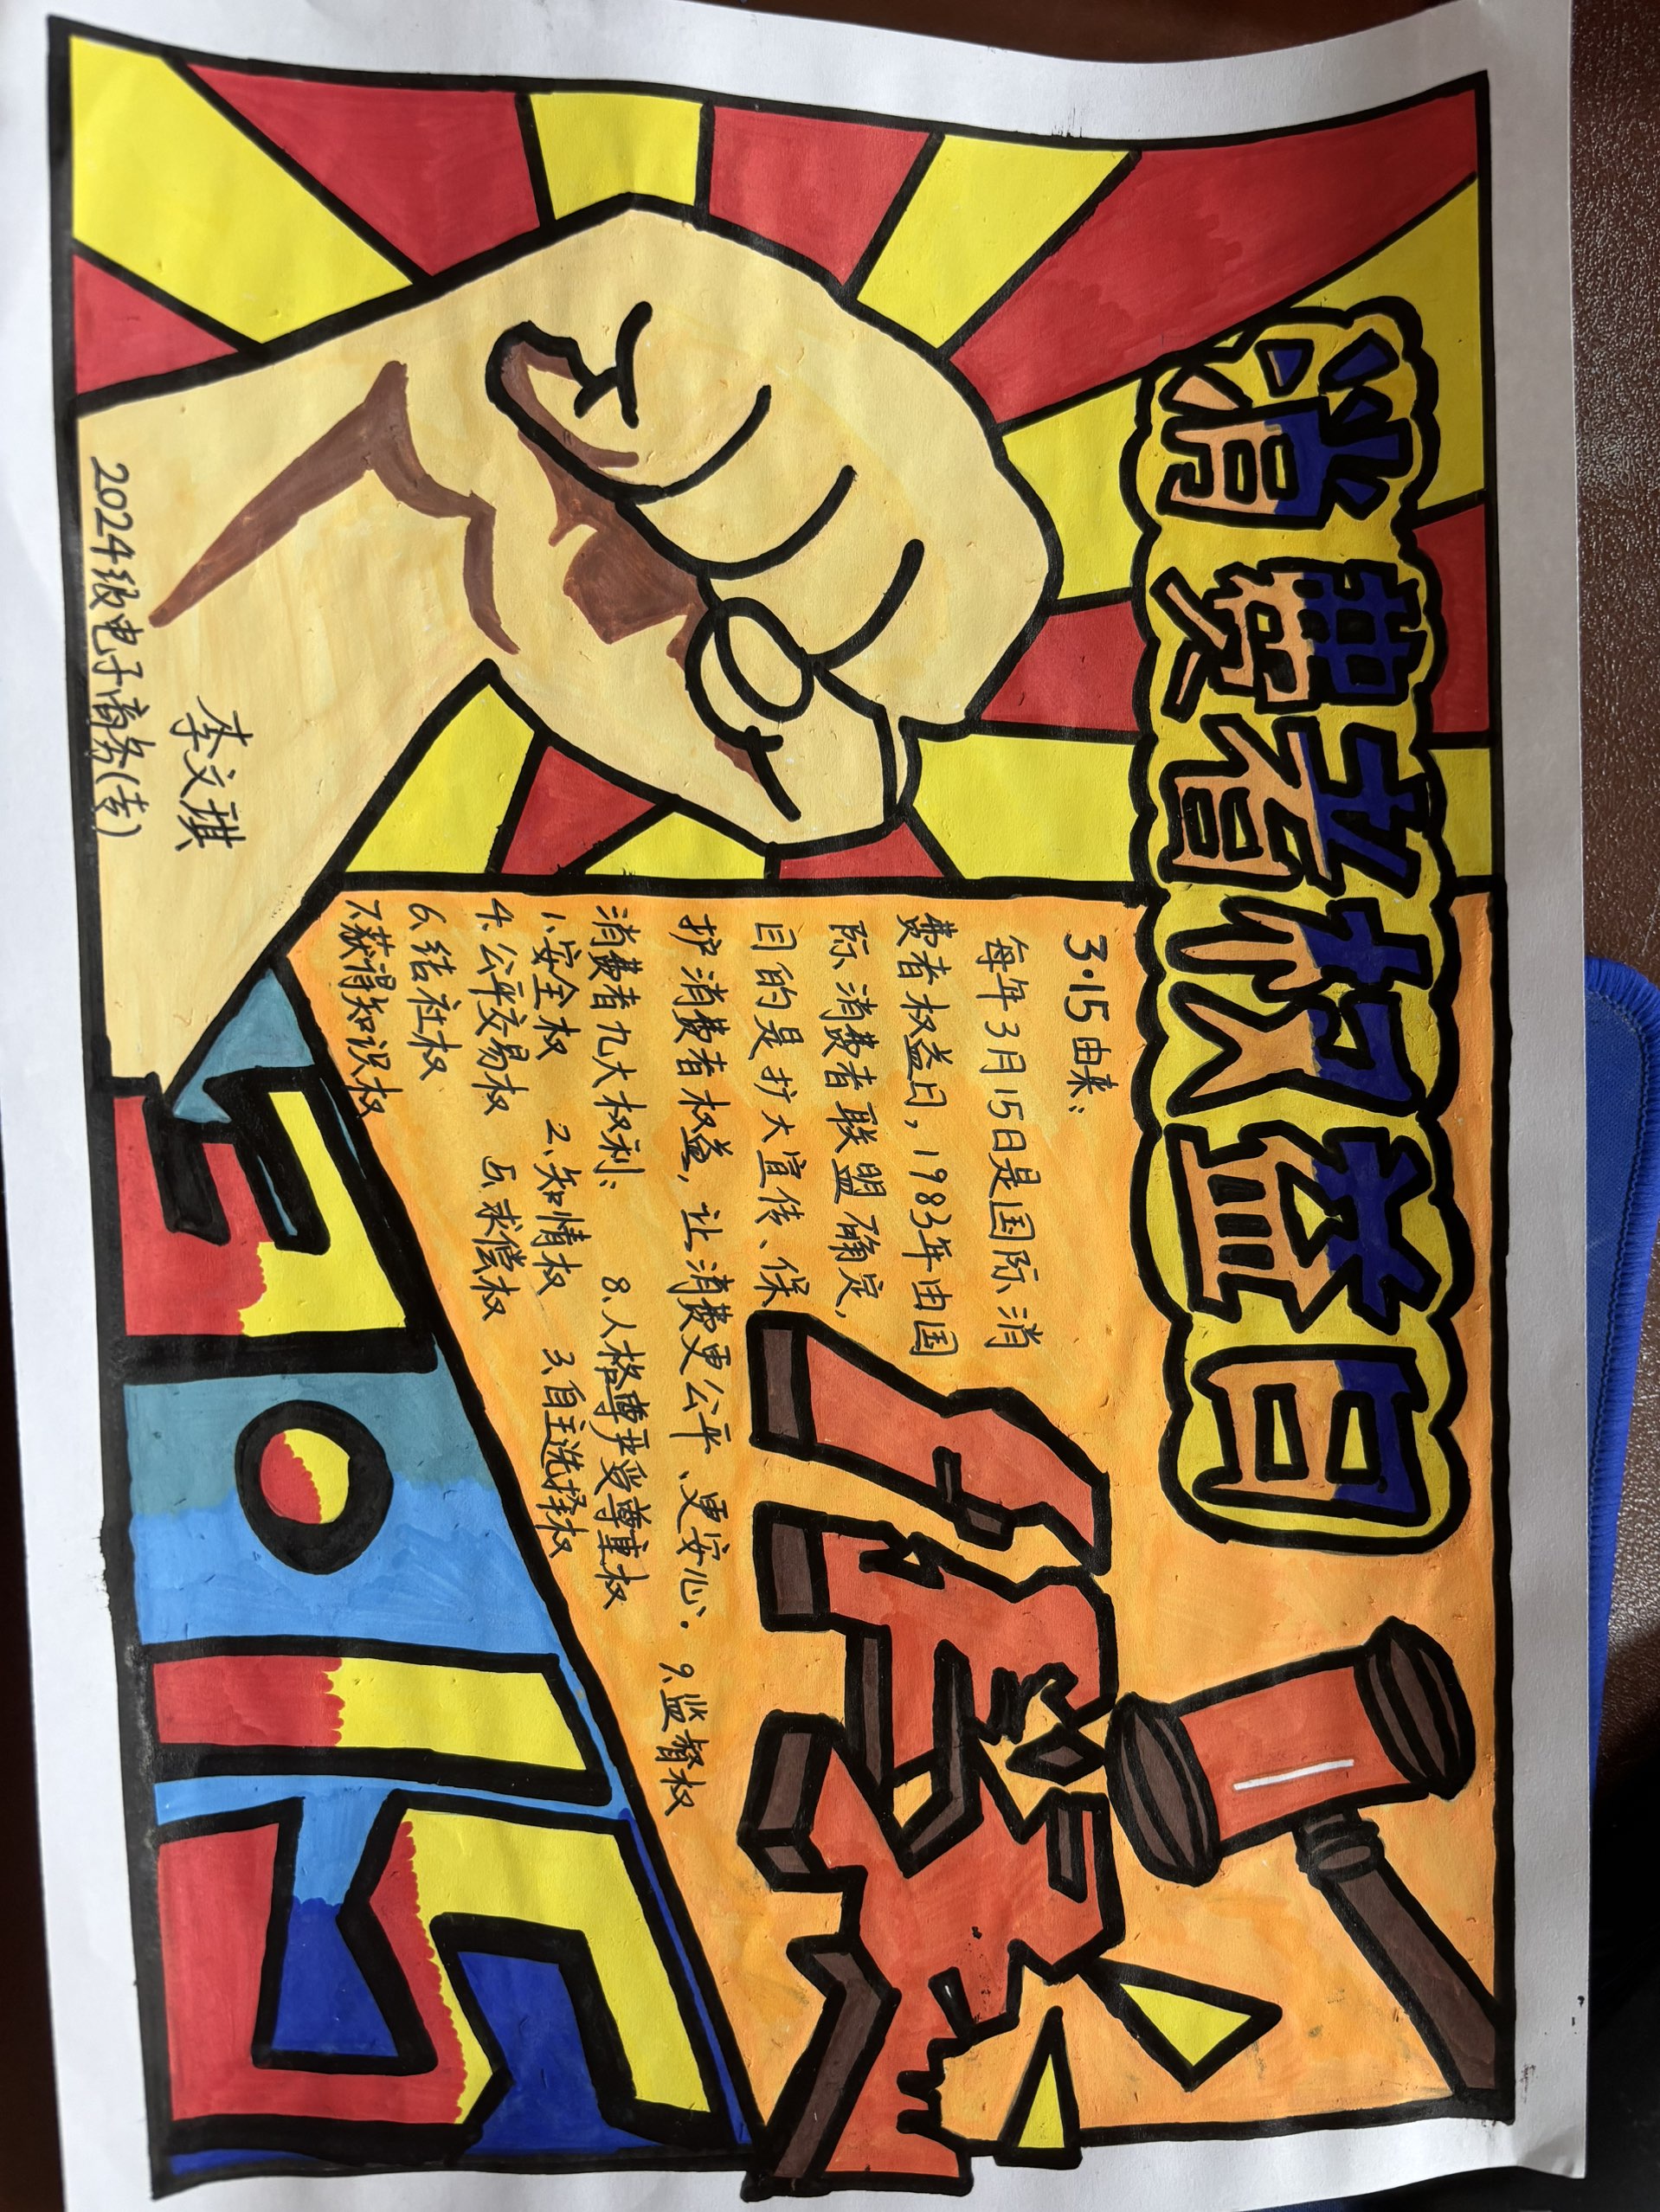 消费者权益日
3·15由来:
每年3月15日是国际消
费者权益日,1983年由国
际消费者联盟确定,
目的是扩大宣传、保
护消费者权益,让消费更公平、更安心.
消费者九大权利:
1.安全权 2.知情权 3.自主选择权
4.公平交易权 5.求偿权
6.结社权
7.获得知识权
8.人格尊严受尊重权
9.监督权
假
3·15
李文琪
2024级电子商务(专)